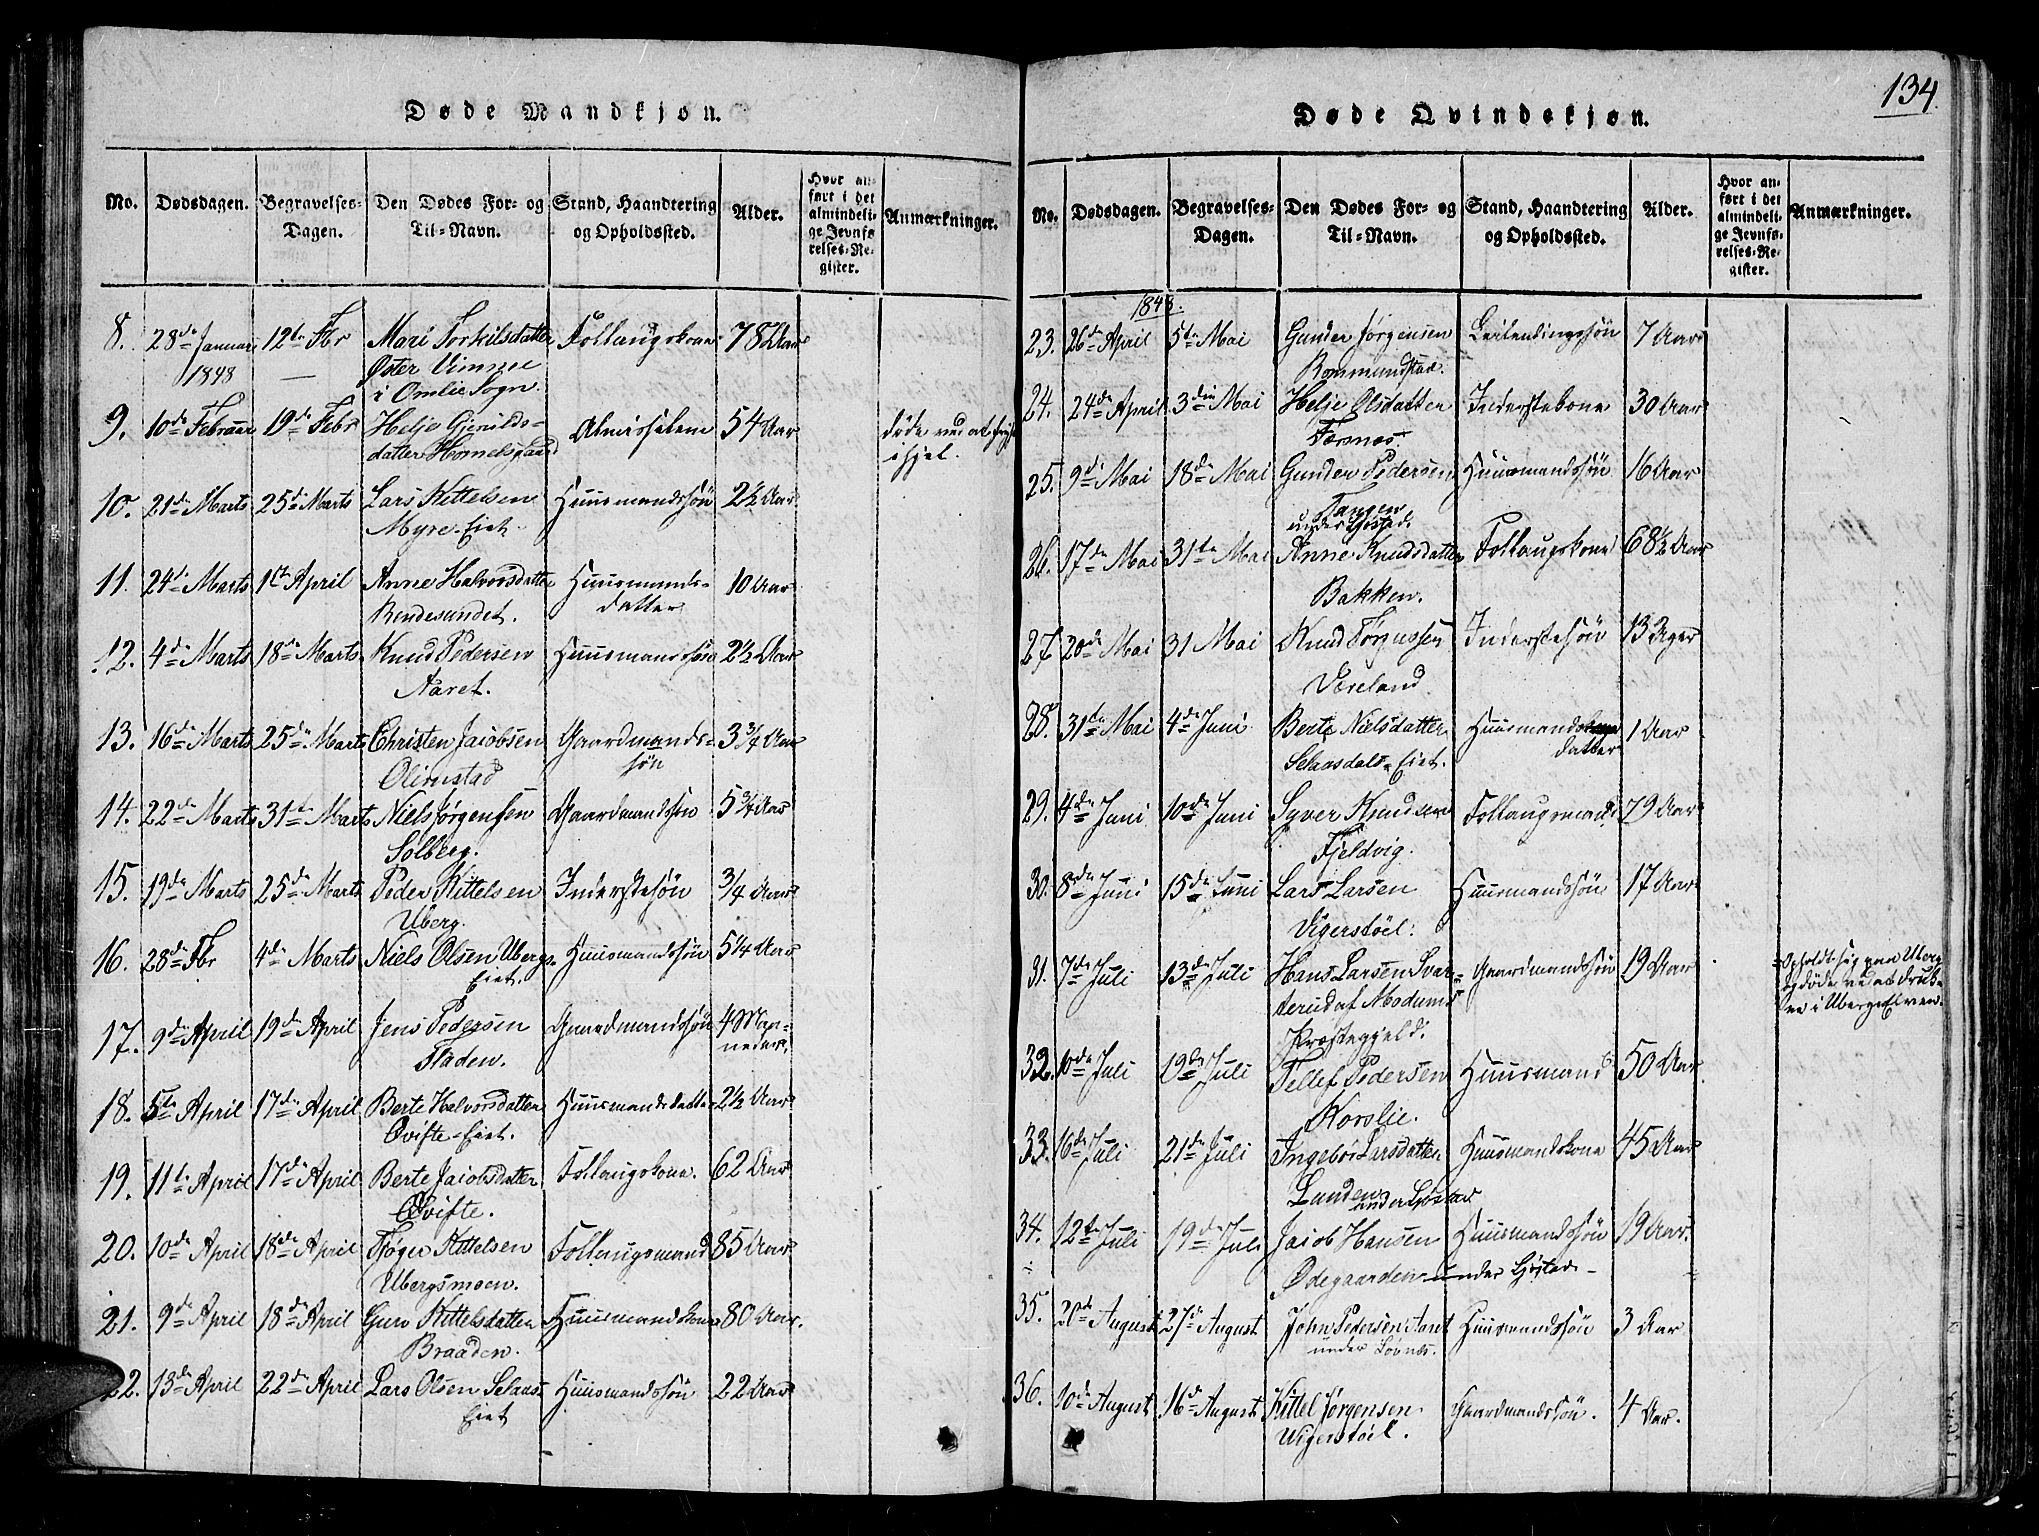 Døde Mandkjøn.
No. Dødsdagen. Begravelses-Dagen. Den Dødes For- og Til-Navn. Stand, Haandtering og Opholdssted. Alder. Hvor anført i det almindelige Jevnførelses-Register. Anmærkninger.
8. 28de Januari 12te Febr Mari Torkilsdatter Follaugskone 78 Aar
1848 — Øster Vimme
i Omlie Sogn.
9. 10de Februar 19de Febr Helje Gjeruldsdatter Almisselem 54 Aar døde ved at fryse
ihjel.
10. 21de Marts 25de Marts Lars Kittelsen Huusmandssøn 2½ Aar
Myre-Eiet.
11. 24de Marts 1ste April Anne Halvorsdatter Huusmands- 10 Aar
Rendesundet. datter
12. 4de Marts 18de Marts Knud Pedersen Huusmandssøn 2½ Aar
Aaret.
13. 16de Marts 25de Marts Christen Jacobsen Gaardmands- 3¾ Aar
Olimstad søn
14. 22de Marts 31te Marts Niels Jørgensen Gaardmandssøn 5¾ Aar
Solberg.
15. 19de Marts 25de Marts Peder Kittelsen Inderstesøn ¾ Aar
Uberg.
16. 28de Fbr 4de Marts Niels Olsen Ubergs- Huusmandssøn 5¼ Aar
Eiet.
17. 9de April 19de April Jens Pedersen Gaardmandssøn 4 Maa-
Fladen. neder.
18. 5te April 17de April Berte Halvorsdatter Huusmandsdatter 2½ Aar
Qvifte-Eiet.
19. 11te April 17de April Berte Jacobsdatter Follaugskone. 62 Aar
Qvifte.
20. 10de April 18de April Tjøger Kittelsen Follaugsmand 85 Aar
Ubergsmoen.
21. 9de April 18de April Guro Kittelsdatter Huusmandskone 80 Aar.
Braaden.
22. 13de April 22de April Lars Olsen Selaas- Huusmandssøn 22 Aar
Eiet
134.
Døde Qvindekjøn.
No. Dødsdagen. Begravelses-Dagen. Den Dødes For- og Til-Navn. Stand, Haandtering og Opholdssted. Alder. Hvor anført i det almindelige Jevnførelses-Register. Anmærkninger.
1848.
23. 26de April 5te Mai Gunder Jørgensen Leilendingssøn 7 Aar
Rommundstad.
24. 24de April 3die Mai Helje Olsdatter Inderstekone 30 Aar
Færsnes.
25. 9de Mai 18de Mai Gunder Pedersen Huusmandssøn 16 Aar
Tangen
under Gjøstad.
26. 17de Mai 31te Mai Anne Knudsdatter Follaugskone 68½ Aar
Bakken.
27. 20de Mai 31 Mai Knud Tørgussen Inderstesøn 13 Uger
Væreland
28. 31te Mai 4de Juni Berte Nielsdatter Huusmands 1 Aar
Selaasdals-Eiet. datter
29. 4de Juni 10de Juni Syver Knudsen Follaugsmand 79 Aar
Fjeldvig.
30. 8de Juni 15de Juni Lars Larsen Huusmandssøn 17 Aar
Vigerstøel.
31. 7de Juli 13de Juli Hans Larsen Svar- Gaardmandssøn 19 Aar Opholdt sig paa Uberg
terud af Modums og døde ved at druk-
Præstegjeld. ne i Ubergs Elven.
32. 10de Juli 19de Juli Tellef Pedersen Huusmand 50 Aar
Norslie.
33. 16de Juli 21de Juli Ingebør Larsdatter Huusmandskone 45 Aar
Lunden under Gjøstad
34. 12te Juli 19de Juli Jacob Hansen Huusmandssøn 19 Aar.
Ødegaarden under Gjøstad
35. 20de August 27de August John Pedersen Aaret Huusmandssøn 3 Aar
under Løvnes.
36. 10de August 16de August Kittel Jørgensen Gaardmandssøn. 4 Aar.
Vigerstøel.